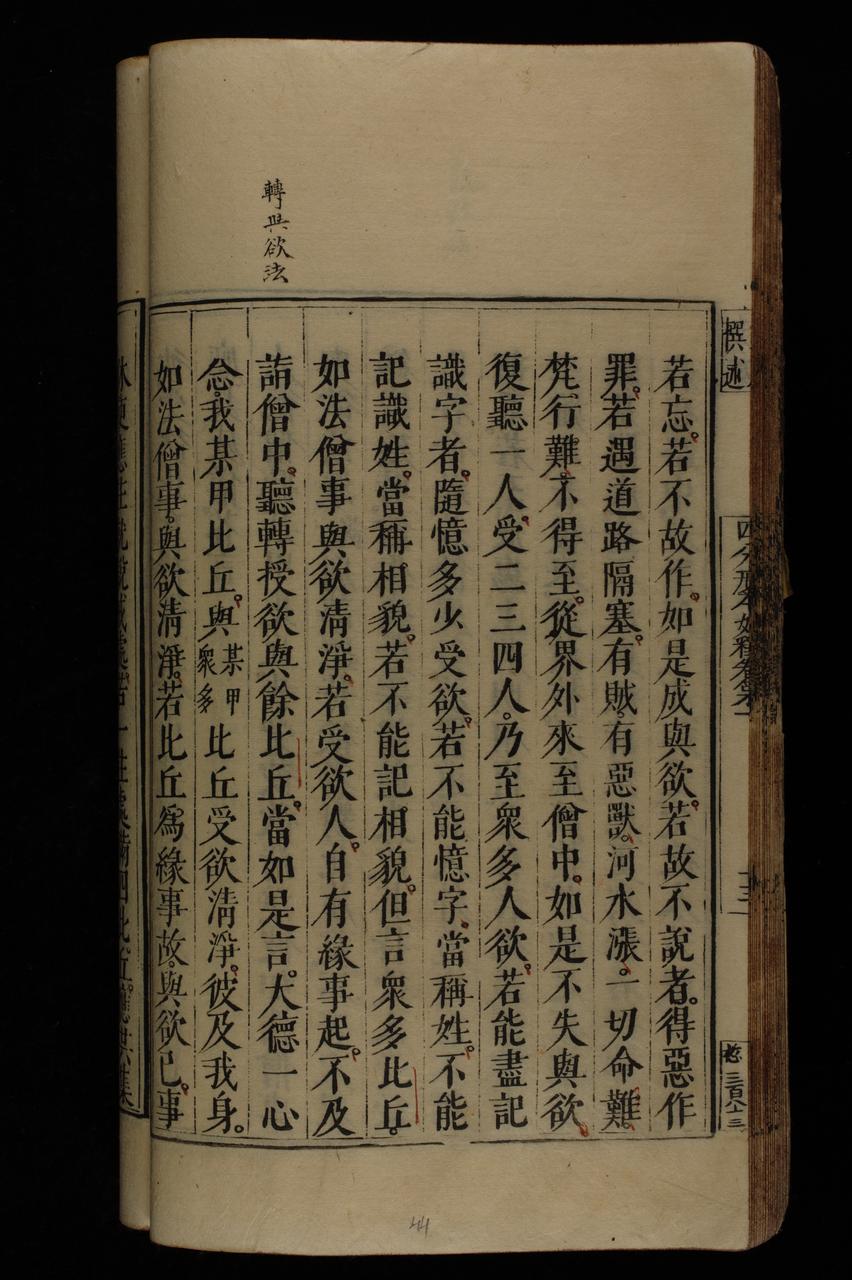 轉與欲法
若忘。若不故作。如是成與欲。若故不說者。得惡作
罪。若遇道路隔塞。有賊。有惡獸。河水漲。一切命難。
梵行難。不得至。從界外來至僧中。如是不失與欲。
復聽一人受二三四人。乃至衆多人欲。若能盡記
識字者。隨憶多少受欲。若不能憶字。當稱姓。不能
記識姓。當稱相貌。若不能記相貌。但言衆多比丘。
如法僧事與欲清淨。若受欲人。自有緣事起。不及
詣僧中。聽轉授欲與餘比丘。當如是言。大德一心
念。我某甲比丘。與某甲衆多比丘受欲清淨。彼及我身。
如法僧事。與欲清淨。若比丘爲緣事故。與欲已。事
撰述